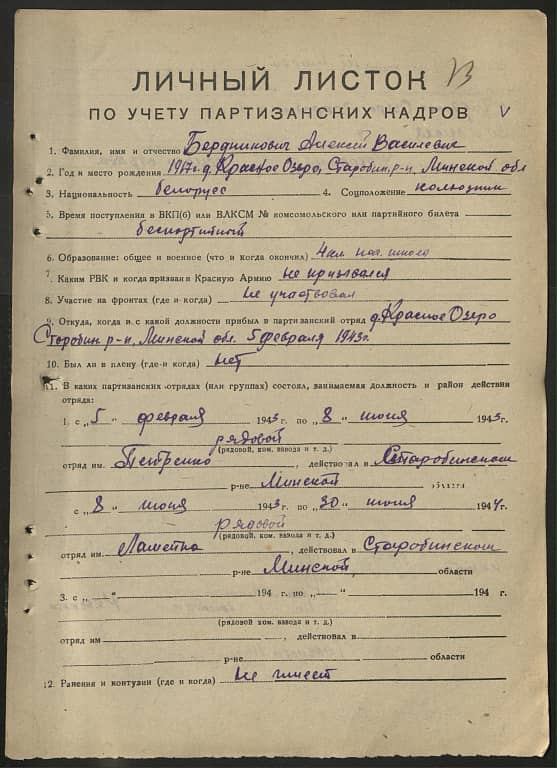 ЛИЧНЫЙ ЛИСТОК
ПО УЧЕТУ ПАРТИЗАНСКИХ КАДРОВ V
1. Фамилия, имя и отчество Бердникович Алексей Василевич
2. Год и место рождения 1917 г. д. Красное Озеро, Старобин. р-н, Минской обл
3. Национальность белорусс 4. Соцположение колхозник
5. Время поступления в ВКП(б) или ВЛКСМ № комсомольского или партийного билета
беспартийный
6. Образование: общее и военное (что и когда окончил) 4 кл. нач. школа
7. Каким РВК и когда призван в Красную Армию не призывался
8. Участие на фронтах (где и когда) Не участвовал
9. Откуда, когда и с какой должности прибыл в партизанский отряд д. Красное Озеро
Старобин р-н, Минской обл. 5 февраля 1943 г.
10. Был ли в плену (где и когда) нет
11. В каких партизанских отрядах (или группах) состоял, занимаемая должность и район действий
отряда:
1. с „5“ февраля 1943 г. по „8“ июня 1943 г.
рядовой
(рядовой, ком. взвода и т. д.)
отряд им. Петренко, действовал в Старобинском
р-не Минской области
с „8“ июня 1943 г. по „30“ июня 1944 г.
рядовой
(рядовой, ком. взвода и т. д.)
отряд им. , действовал в Старобинском
р-не Минской области
3. с „ “ 194 г. по „ “ 194 г.
(рядовой, ком. взвода и т. д.)
отряд им , действовал в
р-не области
12. Ранения и контузии (где и когда) Не имеет